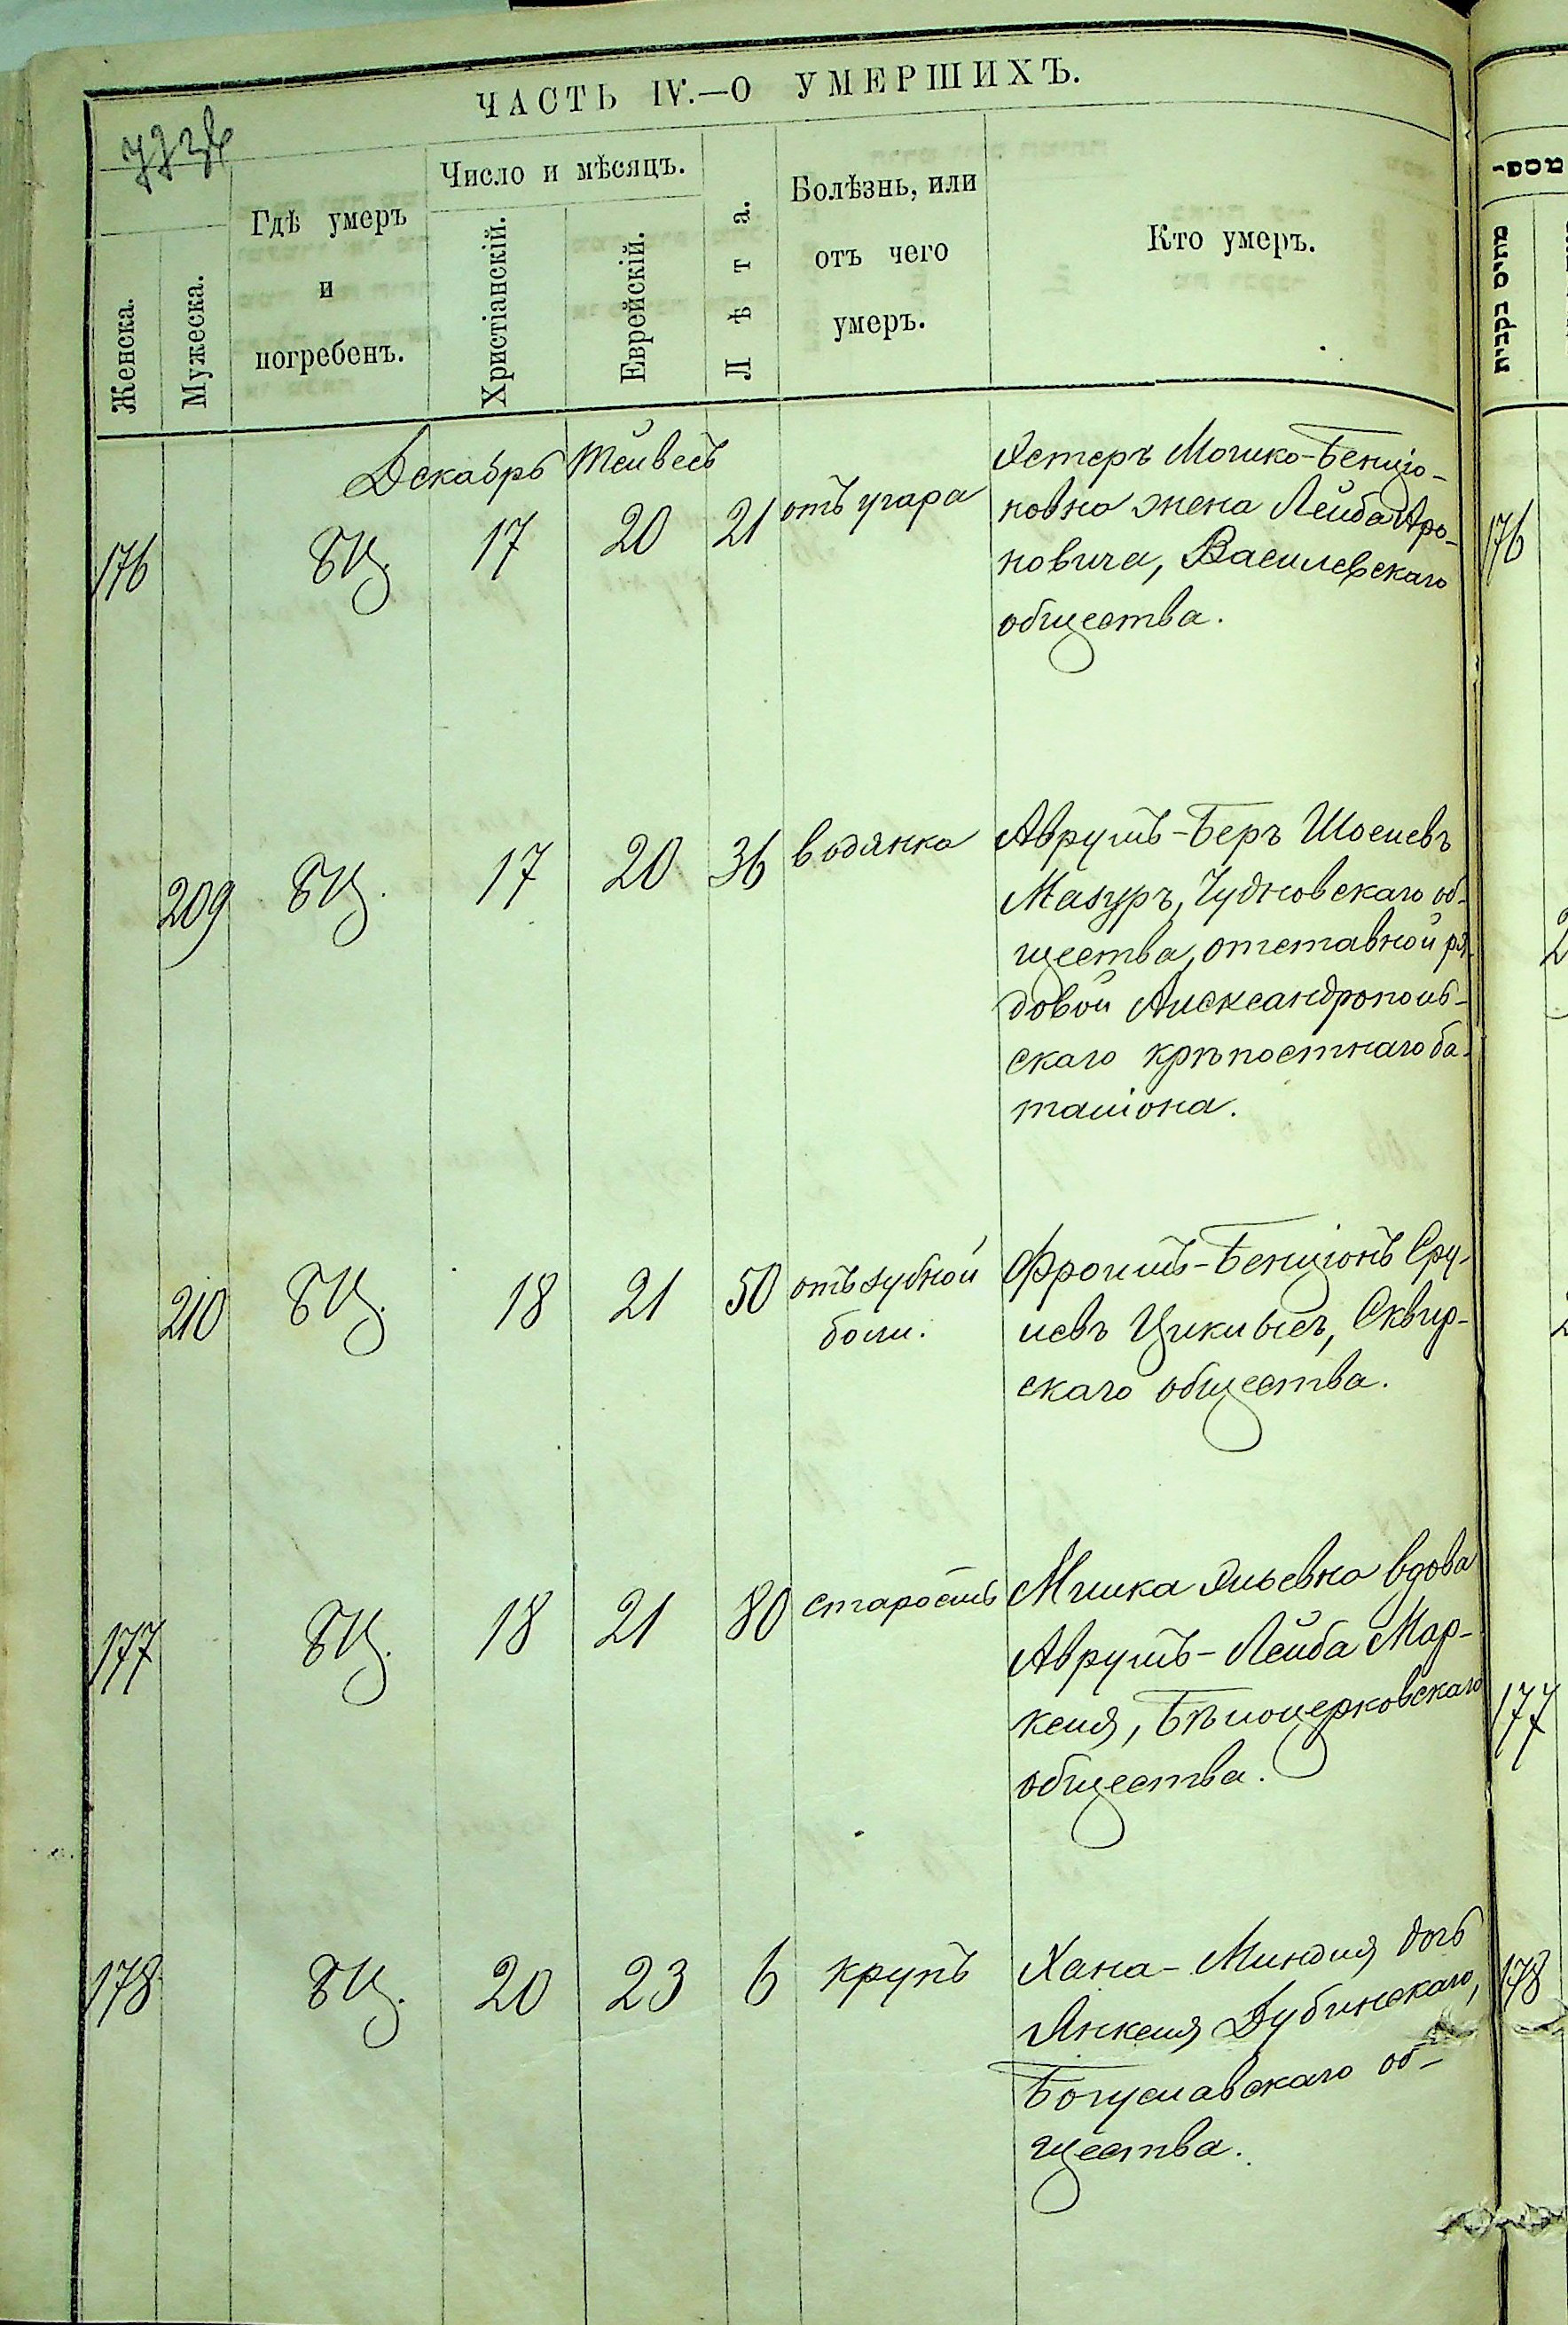 ЧАСТЬ IV.—О УМЕРШИХЪ.
Женска.
Мужеска.
Гдѣ умеръ
и
погребенъ.
Число и мѣсяцъ.
Христіанскій.
Еврейскій.
Лѣта.
Болѣзнь, или
отъ чего
умеръ.
Кто умеръ.
Декабрь Тейвесъ
176 БЦ. 17 20 21 отъ угара
Хстеръ Мошко-Бенціо-
новна жена Лейба Аро-
новича, Василевскаго
общества.
209 БЦ. 17 20 36 водянка
Аврумъ-Беръ Шоелевъ
Мазуръ, Чудновскаго об-
щества, отставной ря-
довой Александрополь-
скаго крѣпостнаго ба-
таліона.
210 БЦ. 18 21 50 отъ зубной
боли.
Фроимъ-Бенціонъ Сру-
левъ Цикилисъ, Сквир-
скаго общества.
177 БЦ. 18 21 80 старость
Милка Эльевна вдова
Аврумъ-Лейба Мар-
келя, Бѣлоцерковскаго
общества.
178 БЦ. 20 23 6 крупъ
Хана-Миндля дочь
Янкеля Дубинскаго,
Богуславскаго об-
щества.
176
177
178